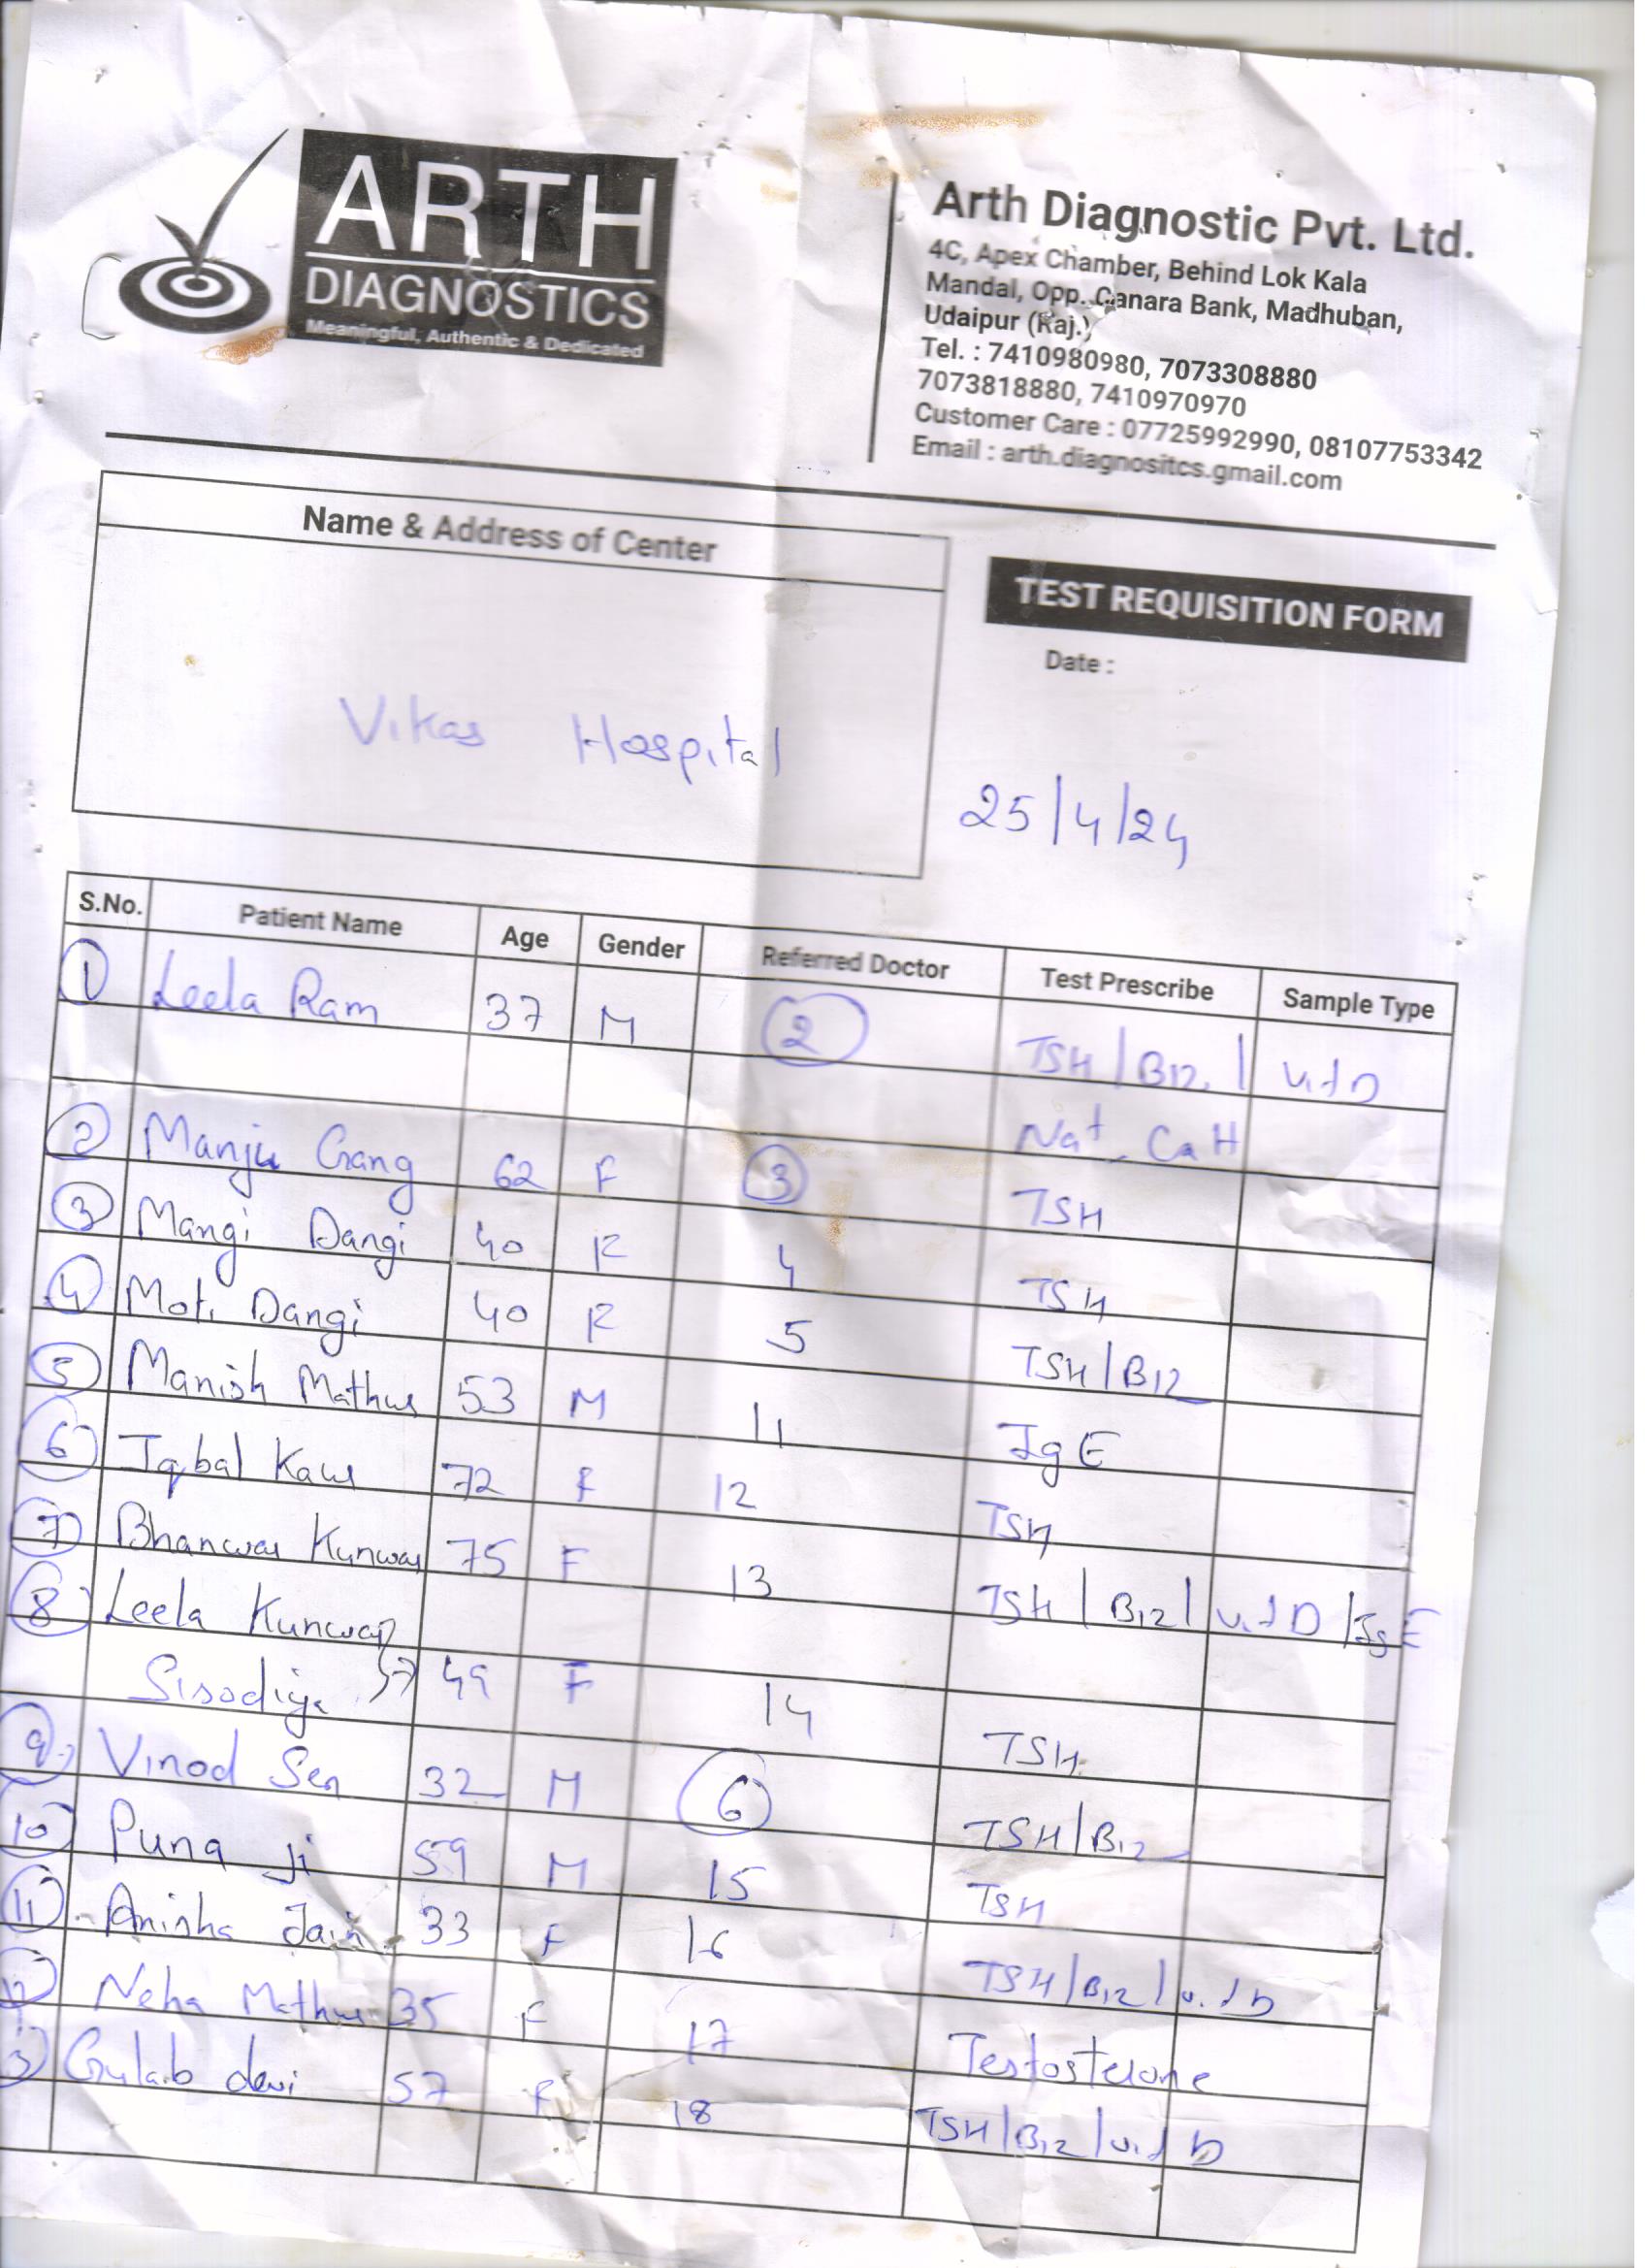 ARTH
DIAGNOSTICS
Meaningful, Authentic & Dedicated
Arth Diagnostic Pvt. Ltd.
4C, Apex Chamber, Behind Lok Kala
Mandal, Opp. Canara Bank, Madhuban,
Udaipur (Raj.)
Tel. : 7410980980, 7073308880
7073818880, 7410970970
Customer Care : 07725992990, 08107753342
Email : arth.diagnositcs.gmail.com
Name & Address of Center
Vikas Hospital
TEST REQUISITION FORM
Date :
25/4/24
S.No. Patient Name Age Gender Referred Doctor Test Prescribe Sample Type
1 Leela Ram 37 M 2 TSH/B12/ Vit D
Na+ Ca H
2 Manju Gang 62 F 3 TSH
3 Mangi Dangi 40 F 4 TSH
4 Moti Dangi 40 F 5 TSH/B12
5 Manish Mathur 53 M 11 IgE
6 Iqbal Kaur 72 F 12 TSH
7 Bhanwar Kunwar 75 F 13 TSH/B12/Vit D/IgE
8 Leela Kunwar
Sisodiya 49 F 14 TSH
9 Vinod Sen 32 M 6 TSH/B12
10 Puna Ji 59 M 15 TSH
11 Anisha Jain 33 F 16 TSH/B12/Vit D
12 Neha Mathur 35 F 17 Testosterone
3 Gulab devi 57 F 18 TSH/B12/Vit D